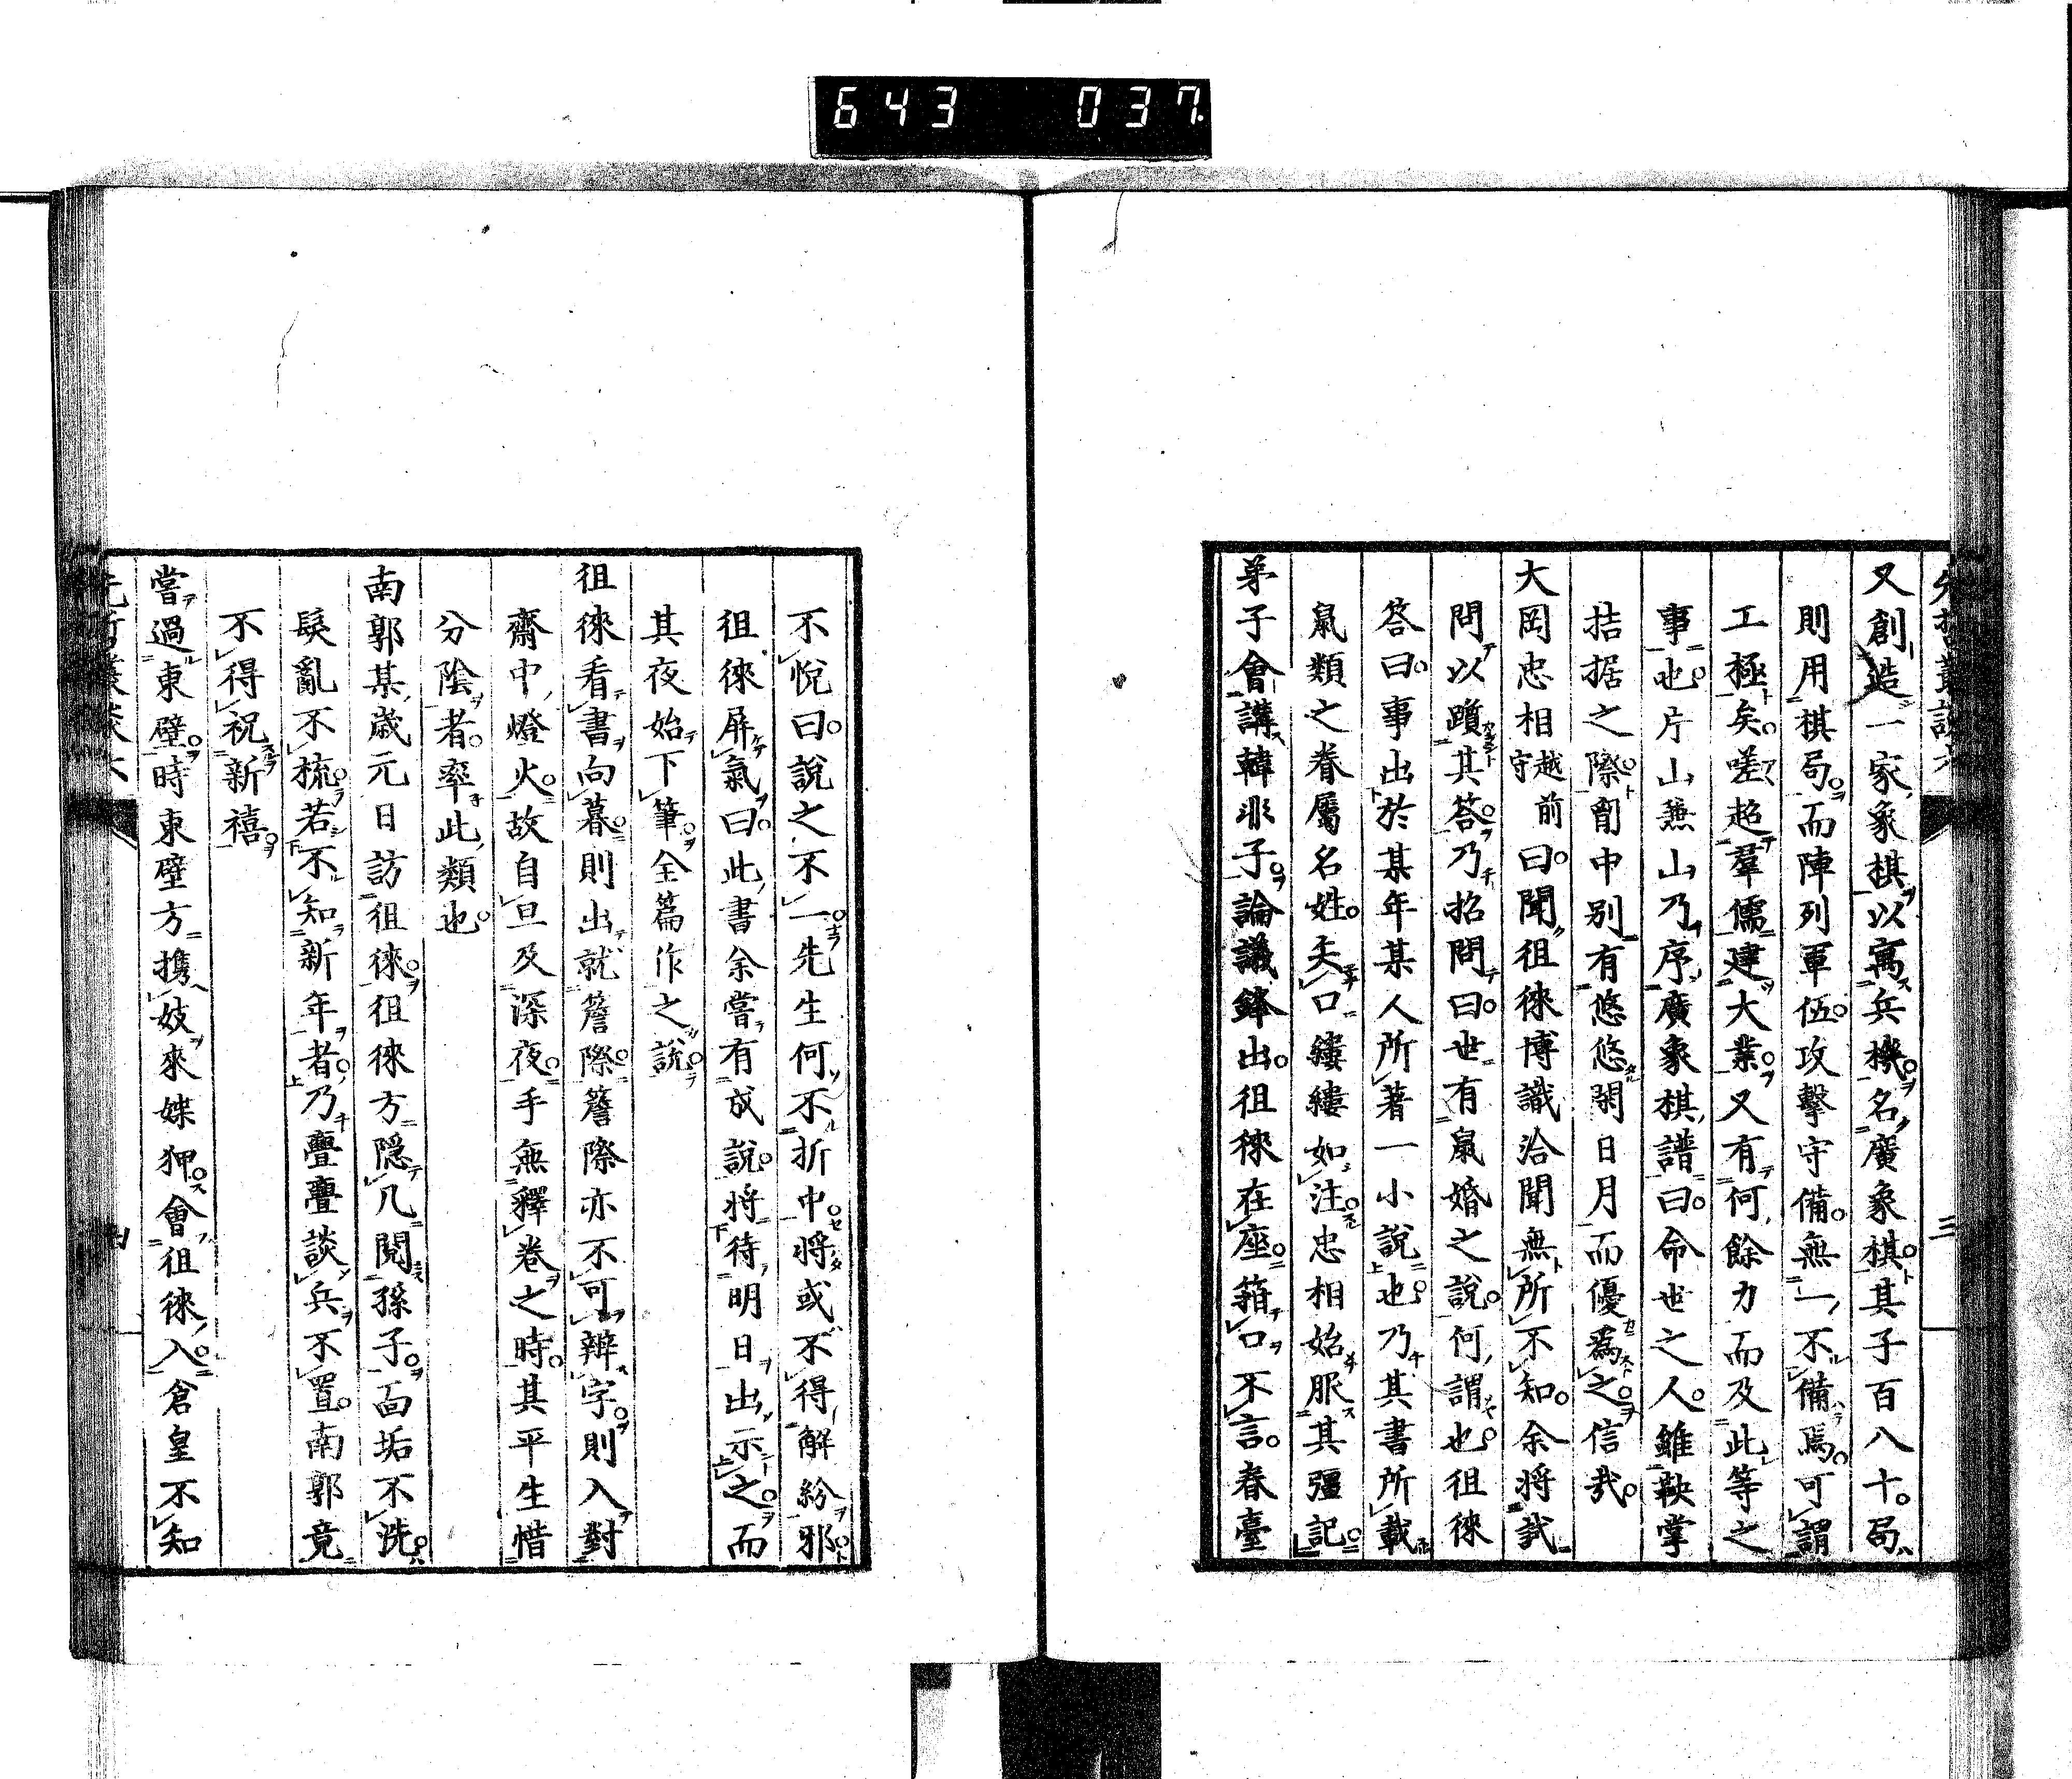 643 037
先哲叢談六
三
又創造一家象棋以寓兵機名廣象棋其子百八十局
則用棋局而陣列軍伍攻擊守備無一不備焉可謂
工極矣嗟超羣儒建大業又有何餘力而及此等之
事也片山兼山乃序廣象棋譜曰命世之人雖鞅掌
拮据之際胷中別有悠悠閑日月而優爲之信哉
大岡忠相越前守曰聞徂徠博識洽聞無所不知余將試
問以躓其答乃招問曰世有鼠婚之說何謂也徂徠
答曰事出於某年某人所著一小說也乃其書所載
鼠類之眷屬名姓矢口鏤縷如注忠相始服其彊記
弟子會講韓非子論議鋒出徂徠在座箝口不言春臺
不悅曰說之不一先生何不折中將或不得解紛邪
徂徠屏氣曰此書余嘗有成說將待明日出示之而
其夜始下筆全篇作之說
徂徠看書向暮則出就簷際簷際亦不可辨字則入對
齋中燈火故自旦及深夜手無釋卷之時其平生惜
分陰者率此類也
南郭某歲元日訪徂徠徂徠方隱几閱孫子面垢不洗
髮亂不梳若不知新年者乃亹亹談兵不置南郭竟
不得祝新禧
嘗過東壁時東壁方携妓來媟狎會徂徠入倉皇不知